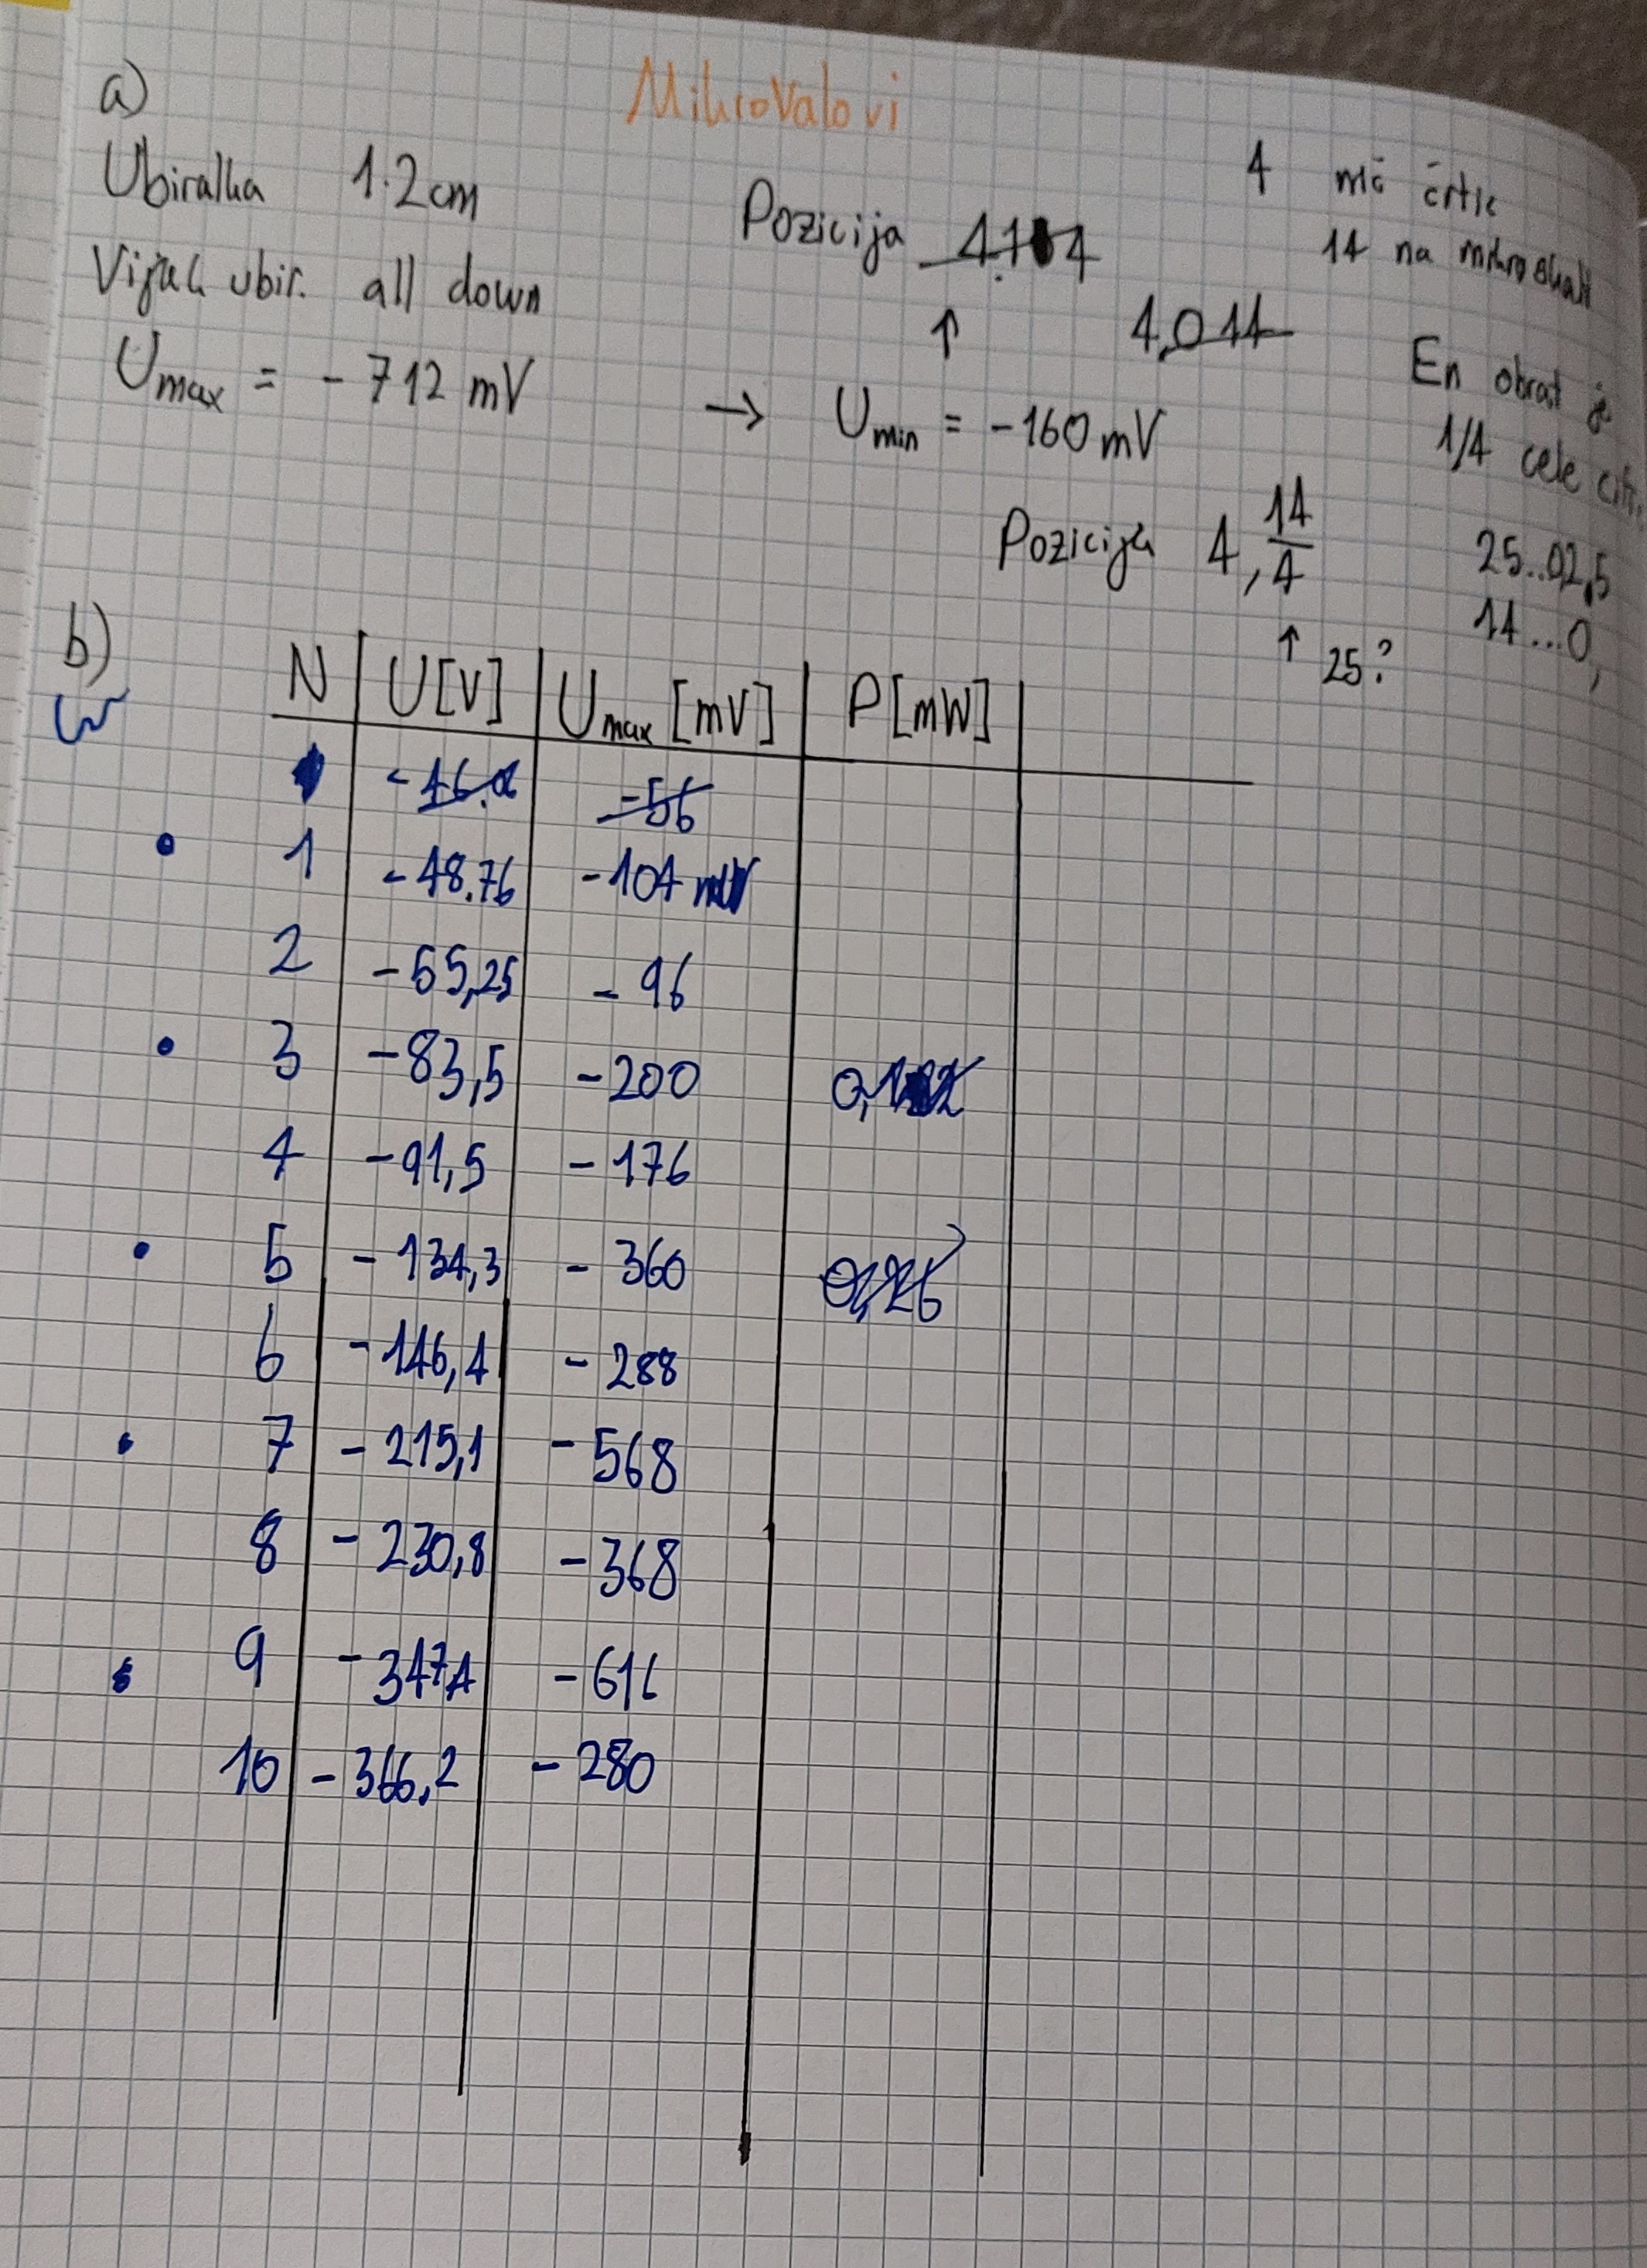 Mikrovalovi
a)
Ubiralka 1.2cm
Vijak ubir. all down
Umax = - 712 mV
Pozicija
4,014
→ Umin = -160 mV
↑
4 črtic
14 na mikroskali
En obrat je
1/4 cele
Pozicija 4, 14/4
↑ 25?
25..02,5
14...0,
b)
N | U[V] | Umax [mV] | P[mW]
-56
1 -48.76 -104
2 -55,25 -96
3 -83,5 -200
4 -91,5 -176
5 -134,3 -360
6 -146,4 -288
7 -215,1 -568
8 -230,8 -368
9 -347,4 -616
10 -366,2 -280